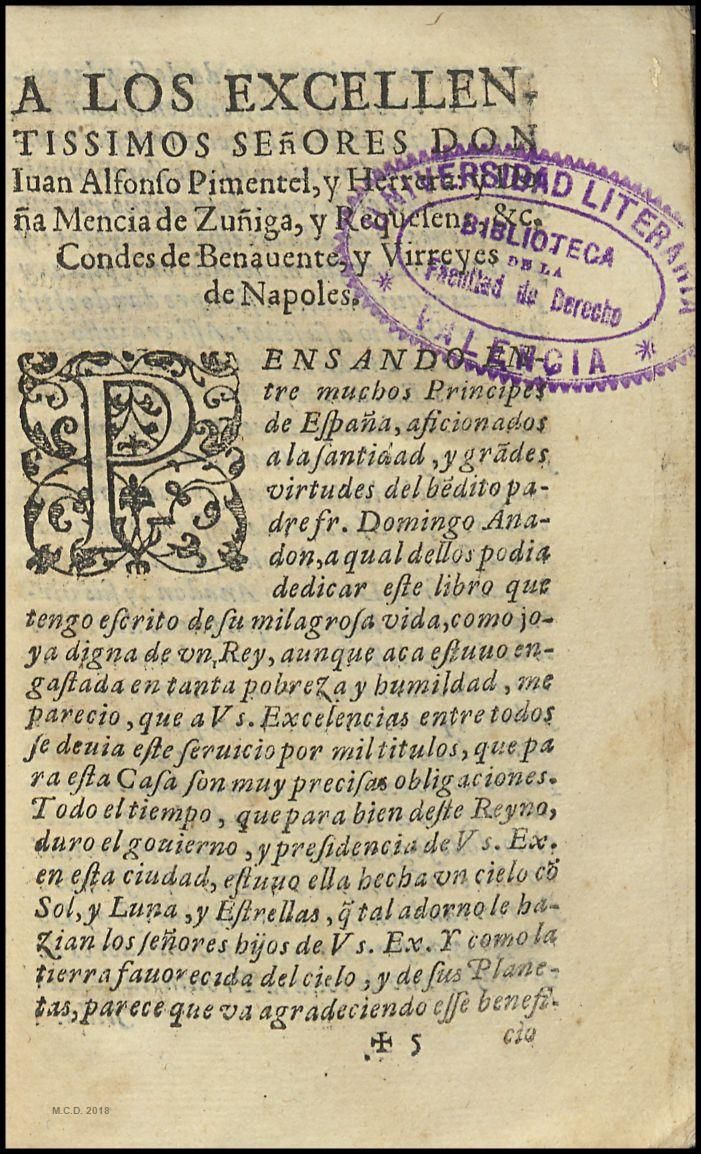 A LOS EXCELLEN-
TISSIMOS SEñORES DON
Iuan Alfonſo Pimentel, y Herrera: y Do
ña Mencia de Zuñiga, y Requeſens, &c.
Condes de Benauente, y Virreyes
de Napoles.
UNIVERSIDAD LITERARIA
BIBLIOTECA
DE LA
Facultad de Derecho
* VALENCIA *
PENSANDO EN-
tre muchos Principes
de Eſpaña, aficionados
a la ſantidad, y grãdes
virtudes del bẽdito pa-
dre fr. Domingo Ana-
don, a qual dellos podia
dedicar eſte libro que
tengo eſcrito de ſu milagroſa vida, como jo-
ya digna de vn Rey, aunque aca eſtuuo en-
gaſtada en tanta pobreza y humildad, me
parecio, que a Vs. Excelencias entre todos
ſe deuia eſte ſeruicio por mil titulos, que pa
ra eſta Caſa ſon muy preciſas obligaciones.
Todo el tiempo, que para bien deſte Reyno,
duro el gouierno, y preſidencia de Vs. Ex.
en eſta ciudad, eſtuuo ella hecha vn cielo cõ
Sol, y Luna, y Eſtrellas, q̃ tal adorno le ha-
zian los ſeñores hijos de Vs. Ex. Y como la
tierra fauorecida del cielo, y de ſus Plane-
tas, parece que va agradeciendo eſſe benefi-
✠ 5
cio
M.C.D. 2018